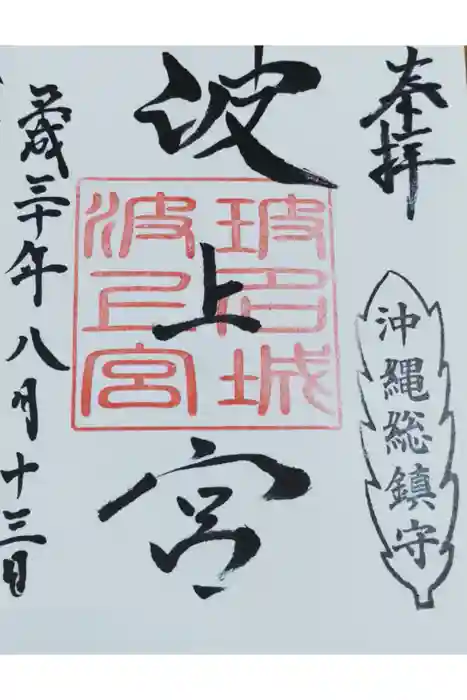 奉拝
沖縄総鎮守
波上宮
玻名城
波上宮
平成三十年八月十三日